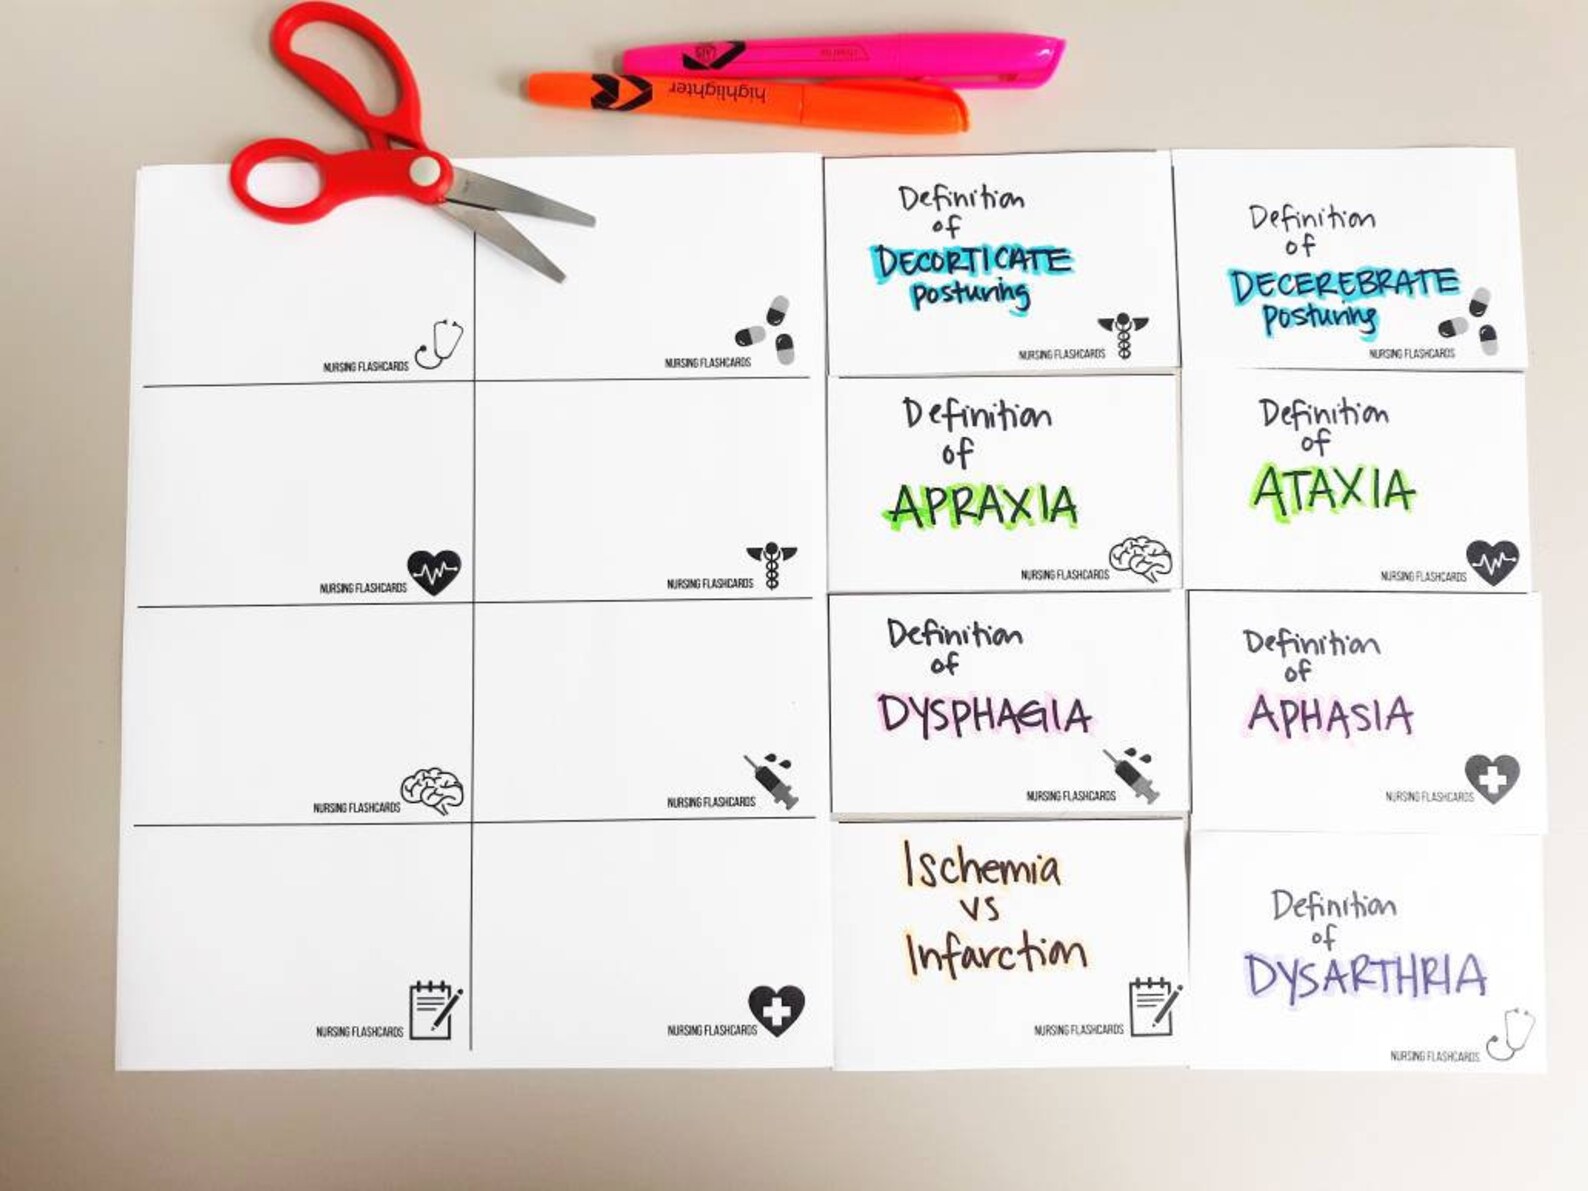 highlighter
NURSING FLASHCARDS
NURSING FLASHCARDS
NURSING FLASHCARDS
NURSING FLASHCARDS
NURSING FLASHCARDS
NURSING FLASHCARDS
NURSING FLASHCARDS
NURSING FLASHCARDS
Definition
of
DECORTICATE
posturing
NURSING FLASHCARDS
Definition
of
DECEREBRATE
posturing
NURSING FLASHCARDS
Definition
of
APRAXIA
NURSING FLASHCARDS
Definition
of
ATAXIA
NURSING FLASHCARDS
Definition
of
DYSPHAGIA
NURSING FLASHCARDS
Definition
of
APHASIA
NURSING FLASHCARDS
Ischemia
vs
Infarction
NURSING FLASHCARDS
Definition
of
DYSARTHRIA
NURSING FLASHCARDS